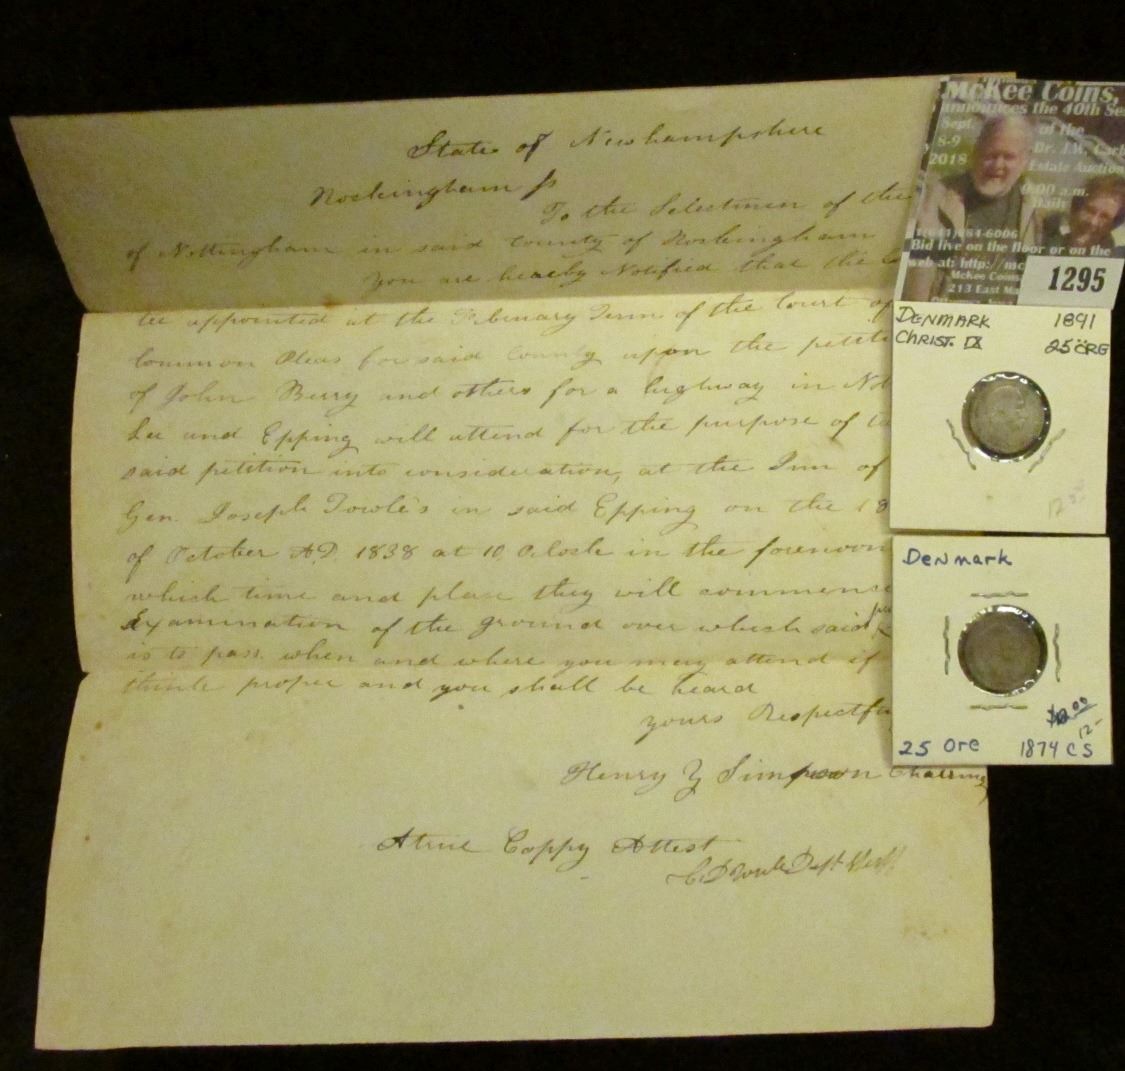 State of Newhampshire
Rockingham Ss
To the Selectmen of the
of Nottingham in said County of Rockingham
You are hereby Notified that the
tee appointed at the Febuary Term of the Court of
Common Pleas for said County upon the petiti
of John Berry and others for a highway in Not
Lee and Epping will attend for the purpose of ta
said petition into consideration, at the Inn of
Gen. Joseph Towle's in said Epping on the 18
of October AD. 1838 at 10 Oclock in the forenoon
which time and place they will commence
Examination of the ground over which said
is to pass. when and where you may attend if
think proper and you shall be heard
yours Respectfu
Henry Y Simpson Chairm
Atrue Coppy Attest
Dept Sheff
McKee Coins,
announces the 40th Se
Sept. of the
8-9 Dr. J.W. Carb
2018 Estate Auction
9:00 a.m.
Daily
1(641)684-6006
Bid live on the floor or on the
web at: http://mc
McKee Coins
213 East Ma
1295
DENMARK 1891
CHRIST. IX 25 ÖRE
12.00
Denmark
$12.00
12-
25 Ore 1874 CS